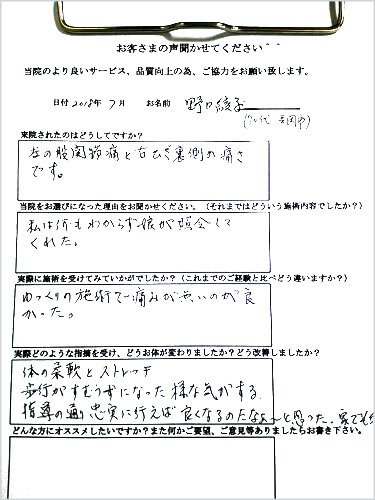 お客さまの声聞かせてください＾＾
当院のより良いサービス、品質向上の為、ご協力をお願い致します。
日付 2018年 7月 お名前 野口綾子
来院されたのはどうしてですか？
左の股関節痛と右ひざ裏側の痛さ
です。
当院をお選びになった理由をお聞かせください。（それまではどういう施術内容でしたか？）
私は何もわからず娘が照会して
くれた。
実際に施術を受けてみていかがでしたか？（これまでのご経験と比べどう違いますか？）
ゆっくりの施術で痛みが無いのが良
かった。
実際どのような指摘を受け、どうお体が変わりましたか？どう改善しましたか？
体の柔軟とストレッチ
歩行がすむうずになった様な気がする
指導の通り忠実に行えば良くなるのだなぁ～と思った。家でも
どんな方にオススメしたいですか？また何かご要望、ご意見等ありましたらお書き下さい。